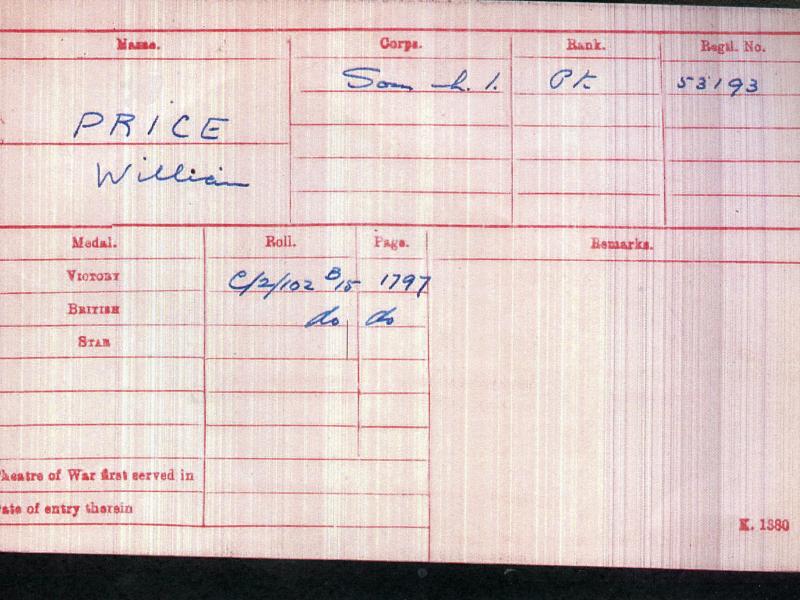 Name. Corps. Rank. Regtl. No.
Som L. I. Pte 53193
PRICE
William
Medal. Roll. Page. Remarks.
VICTORY C/2/102 B/15 1797
BRITISH do do
STAR
Theatre of War first served in
Date of entry therein
K. 1380